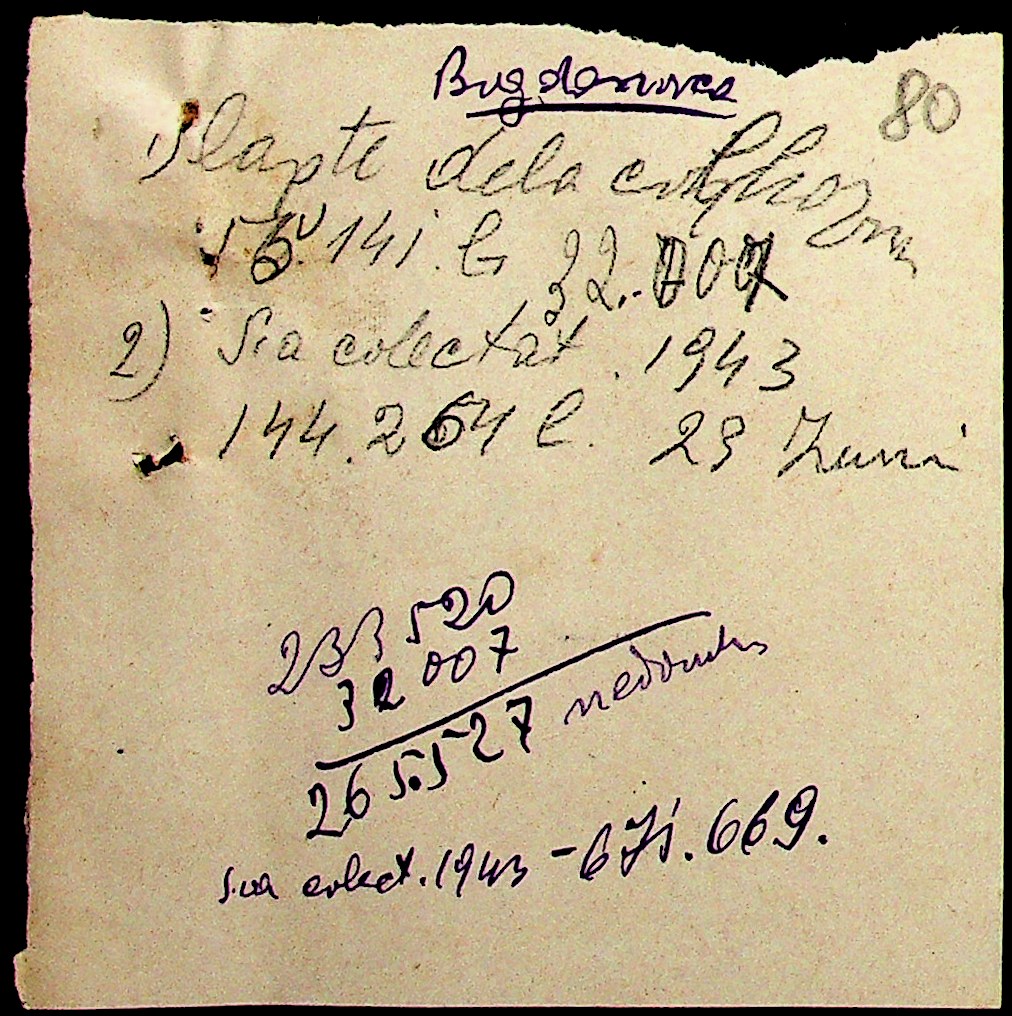 Bogdanovca
80
1) lapte dela colhozm
56.141. l 32.007
2) S-a colectat. 1943
144.264 l. 23 Iunii
233 520
32 007
265.527
S-a colect. 1943 - 671.669.